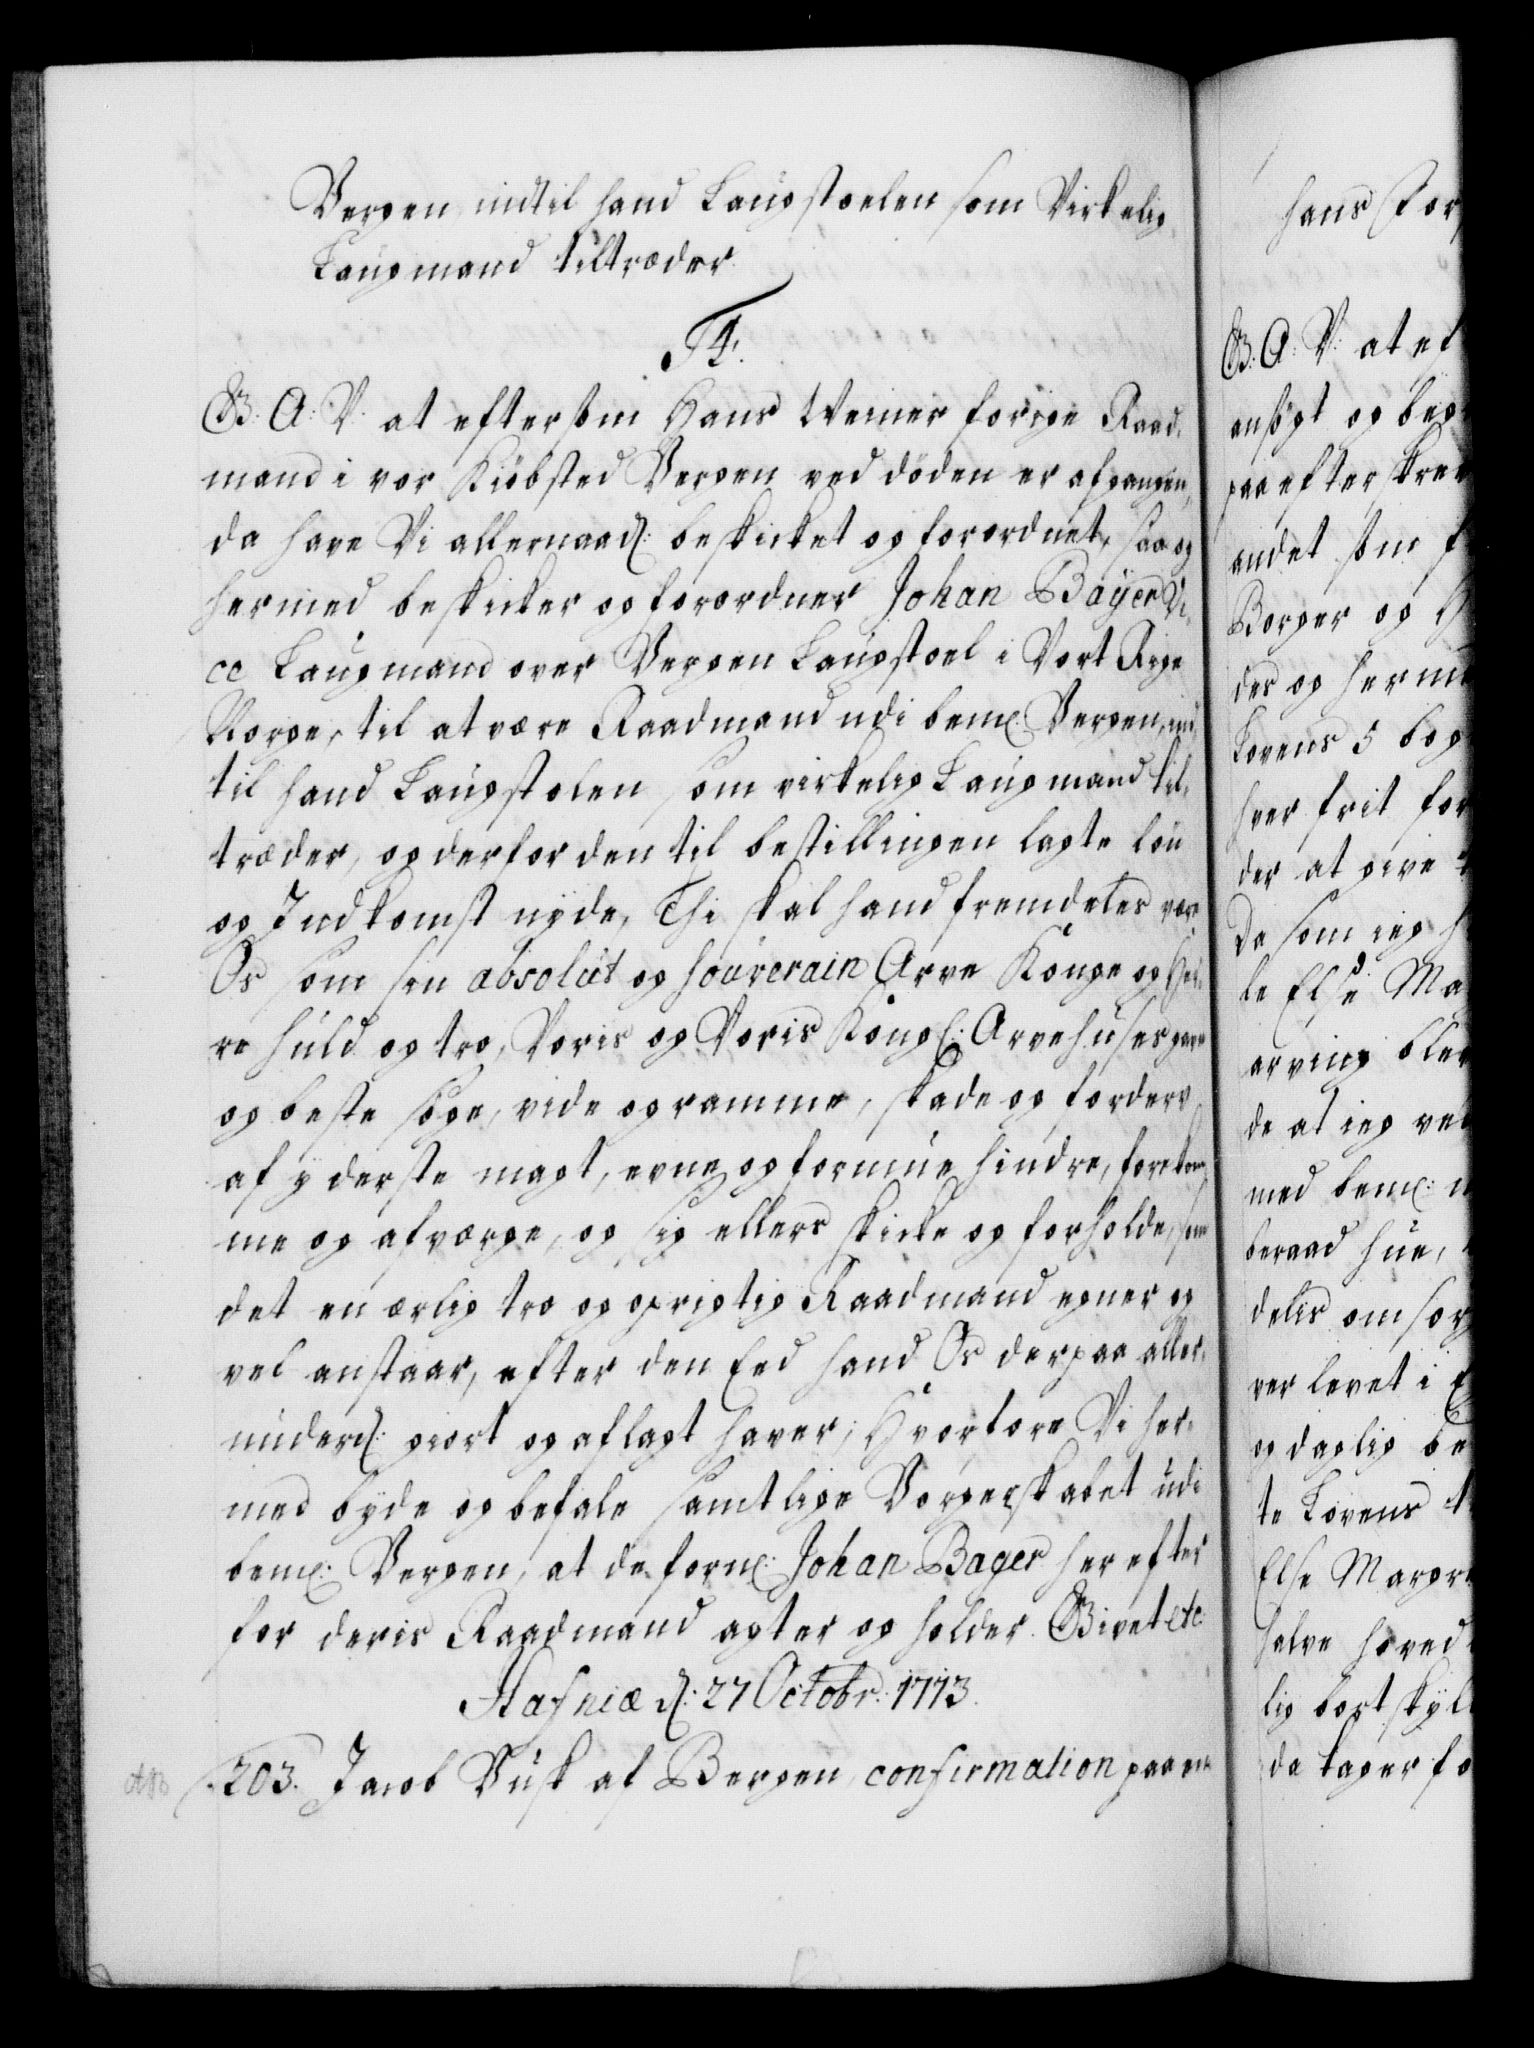 Bergen indtil hand Laugstoelen som Virkelig
Laugmand tiltræder.
F4.
G: A: V: at eftersom Hans Weiner forige Raad-
mand i vor Kiøbsted Bergen ved døden er afgangen,
da have Vi allernaad: beskicket og forordnet, saa og
hermed beskicker og forordner Johan Bager Vi-
ce Laugmand over Bergen Laugstoel i Vort Rige
Norge, til at være Raadmand udi bem: Bergen, ind-
til hand Laugstolen som virkelig Laugmand til-
træder, og derfor den til bestillingen lagte løn
og Indkomst nyde, Thi skal hand fremdeles være
Os som sin absolut og souverain Arve Konge og Her-
re huld og tro, Voris og Voris Kongl: Arvehuses gavn
og beste søge, vide og ramme, skade og forderv
af yderste magt, evne og formue hindre, forekom-
me og afværge, og sig ellers skicke og forholde, som
det en ærlig tro og oprigtig Raadmand egner og
vel anstaar, efter den Eed hand Os derpaa aller-
underd: giort og aflagt haver; Hvorfore Vi her-
med byde og befale samtlige Borgerskabet udi
bem: Bergen, at de forn: Johan Bager herefter
for deris Raadmand agter og holder. Givet etc:
Hafniæ d: 27 Octobr: 1713.
203. Jacob Busk af Bergen, confirmation paa en
hans For
G: A: V: at ef
ansøgt og beg
paa efterskrev
andet som f
Borger og H
des og herme
Lovens 5 bog
hver frit for
der at give
Da som ieg h
le Else Ma
arving blev
de at ieg vel
med bem:
beraad hue,
delis omsorg
ver levet i E
og daglig be
te Lovens
Else Margre
halve hoved
lig bortskyl
da tager fo